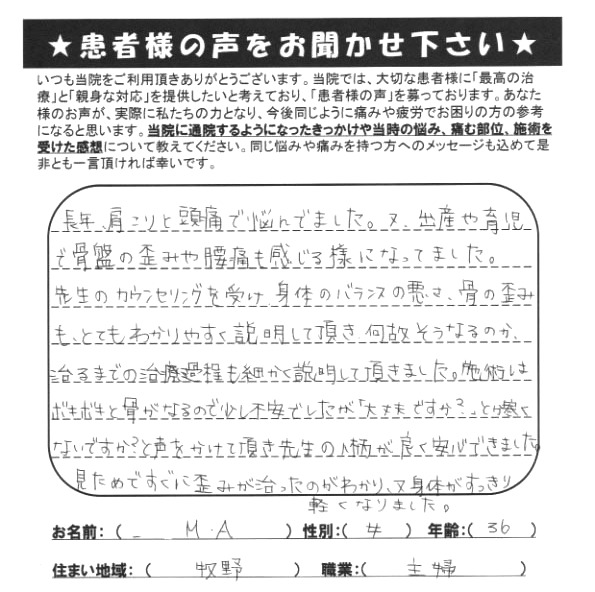 ★患者様の声をお聞かせ下さい★
いつも当院をご利用頂きありがとうございます。当院では、大切な患者様に「最高の治
療」と「親身な対応」を提供したいと考えており、「患者様の声」を募っております。あなた
様のお声が、実際に私たちの力となり、今後同じように痛みや疲労でお困りの方の参考
になると思います。当院に通院するようになったきっかけや当時の悩み、痛む部位、施術を
受けた感想について教えてください。同じ悩みや痛みを持つ方へのメッセージも込めて是
非とも一言頂ければ幸いです。
長年、肩こりと頭痛で悩んでました。又、出産や育児
で骨盤の歪みや腰痛も感じる様になってました。
先生のカウンセリングを受け、身体のバランスの悪さ、骨の歪み
も、とてもわかりやすく説明して頂き、何故そうなるのか、
治るまでの治療過程も細かく説明して頂きました。施術は
ボキボキと骨がなるので少し不安でしたが「大丈夫ですか?」とか「痛く
ないですか?」と声をかけて頂き先生の人柄が良く安心できました。
見ためですぐに歪みが治ったのがわかり、又身体がすっきり
軽くなりました。
お名前:( M.A ) 性別:( 女 ) 年齢:( 36 )
住まい地域:( 牧野 ) 職業:( 主婦 )